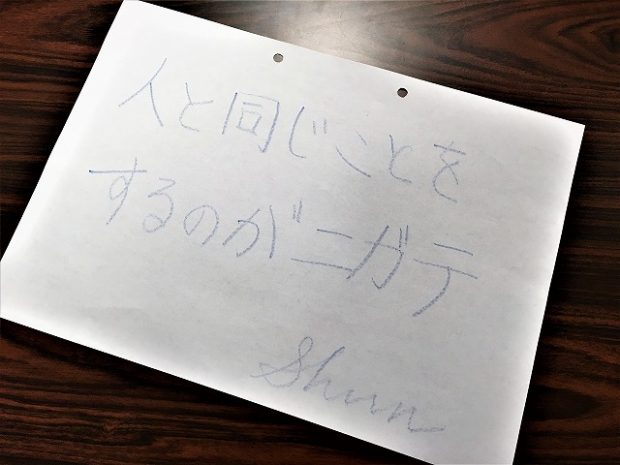 人と同じことを
するのがニガテ
Shun